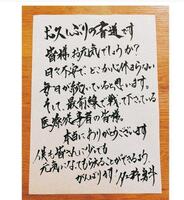 お久しぶりの書道です
皆様、お元気でしょうか?
日々不安で、どこか心休まらない
毎日が続いていると思います。
そして、最前線で戦って下さっている
医療従事者の皆様。
本当にありがとうございます
僕も皆さんに少しでも
元気になってもらえることができるよう
がんばります!